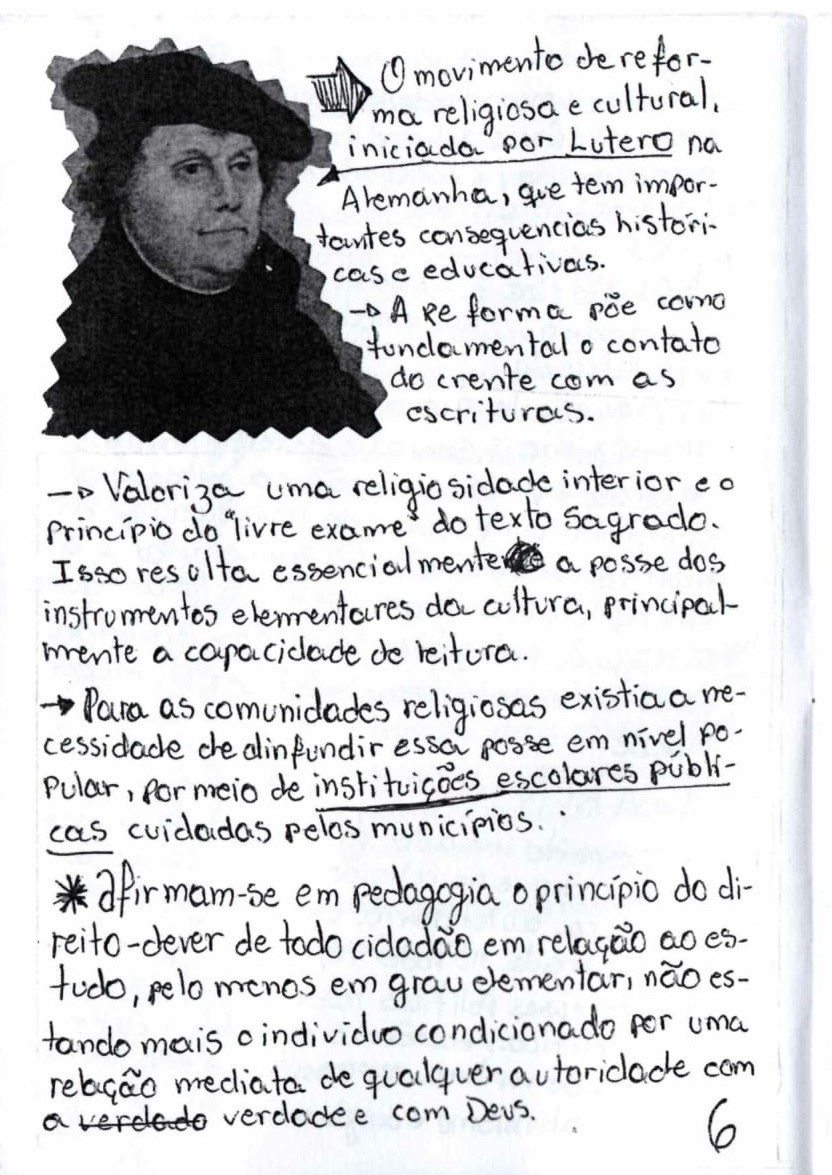 O movimento de refor-
ma religiosa e cultural,
iniciada por Lutero na
Alemanha, que tem impor-
tantes consequencias históri-
cas e educativas.
→ A Reforma põe como
fundamental o contato
do crente com as
escrituras.
→ Valoriza uma religiosidade interior e o
Princípio do "livre exame" do texto Sagrado.
Isso resulta essencialmente a posse dos
instrumentos elementares da cultura, principal-
mente a capacidade de leitura.
→ Para as comunidades religiosas existia a ne-
cessidade de dinfundir essa posse em nível po-
pular, por meio de instituições escolares públi-
cas cuidadas pelos municípios.
* afirmam-se em pedagogia o princípio do di-
reito-dever de todo cidadão em relação ao es-
tudo, pelo menos em grau elementar, não es-
tando mais o individuo condicionado por uma
relação mediata de qualquer autoridade com
a verdado verdade e com Deus.
6